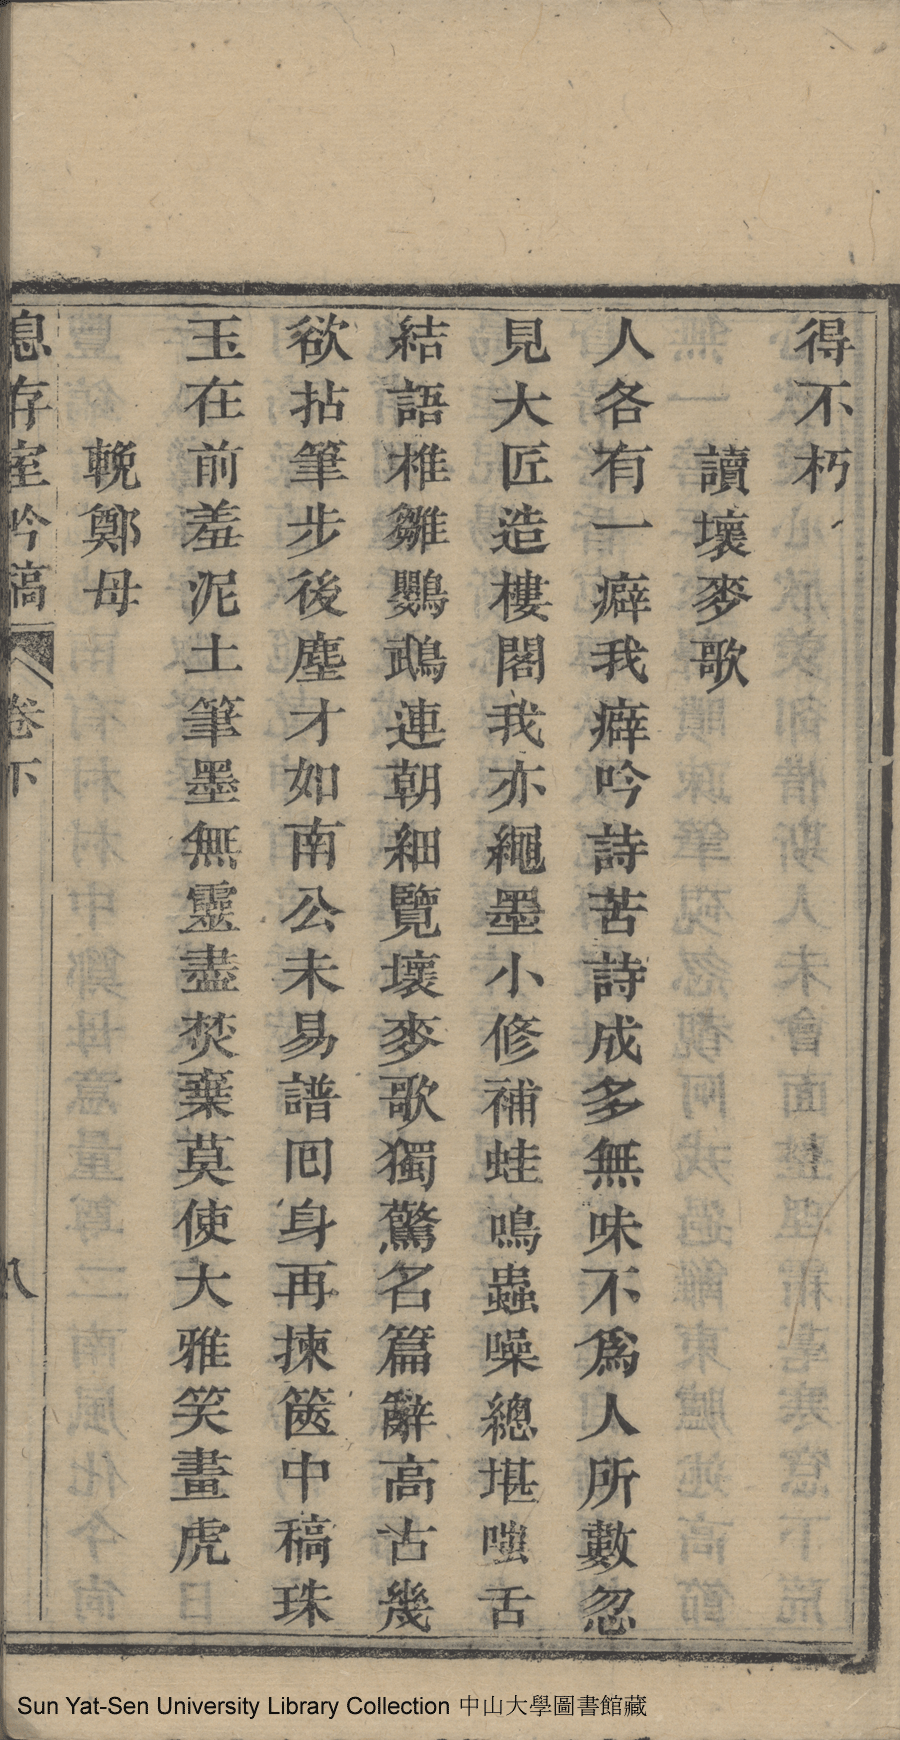 得不朽
讀壞麥歌
人各有一癖我癖吟詩苦詩成多無味不爲人所數忽
見大匠造樓閣我亦繩墨小修補蛙鳴蟲噪總堪嗤舌
結語椎雛鸚鵡連朝細覽壞麥歌獨驚名篇辭高古幾
欲拈筆步後塵才如南公未易譜回身再揀篋中稿珠
玉在前羞泥土筆墨無靈盡焚棄莫使大雅笑畫虎
輓鄭母
息存室吟稿 卷下 八
Sun Yat-Sen University Library Collection 中山大學圖書館藏